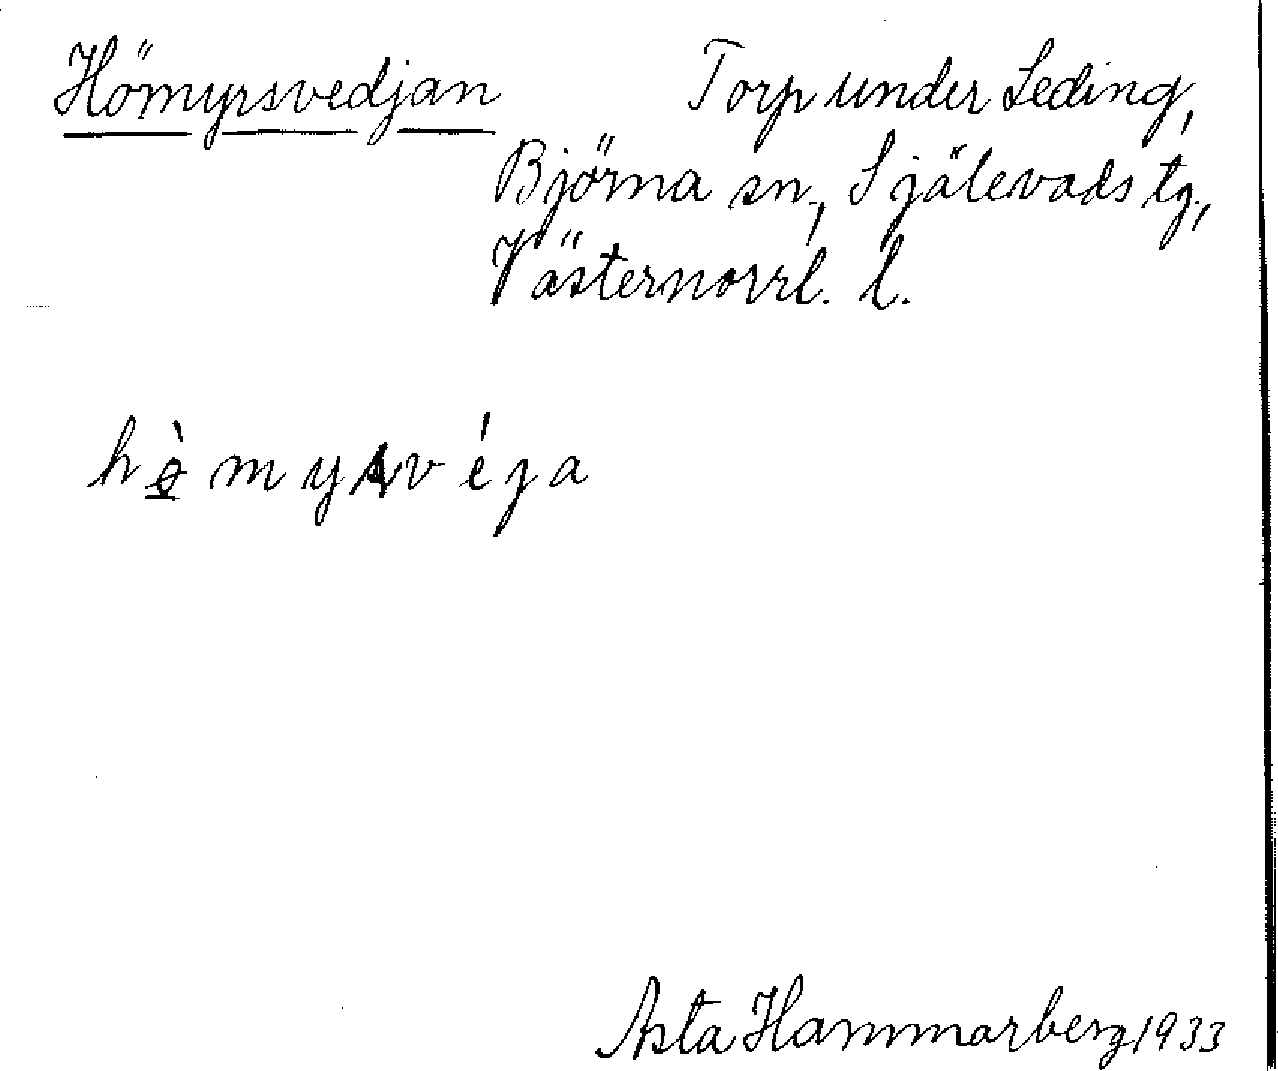 Hömyrsvedjan Torp under Leding,
Björna sn, Själevads tg,
Västernorrl. l.
Asta Hammarberg 1933